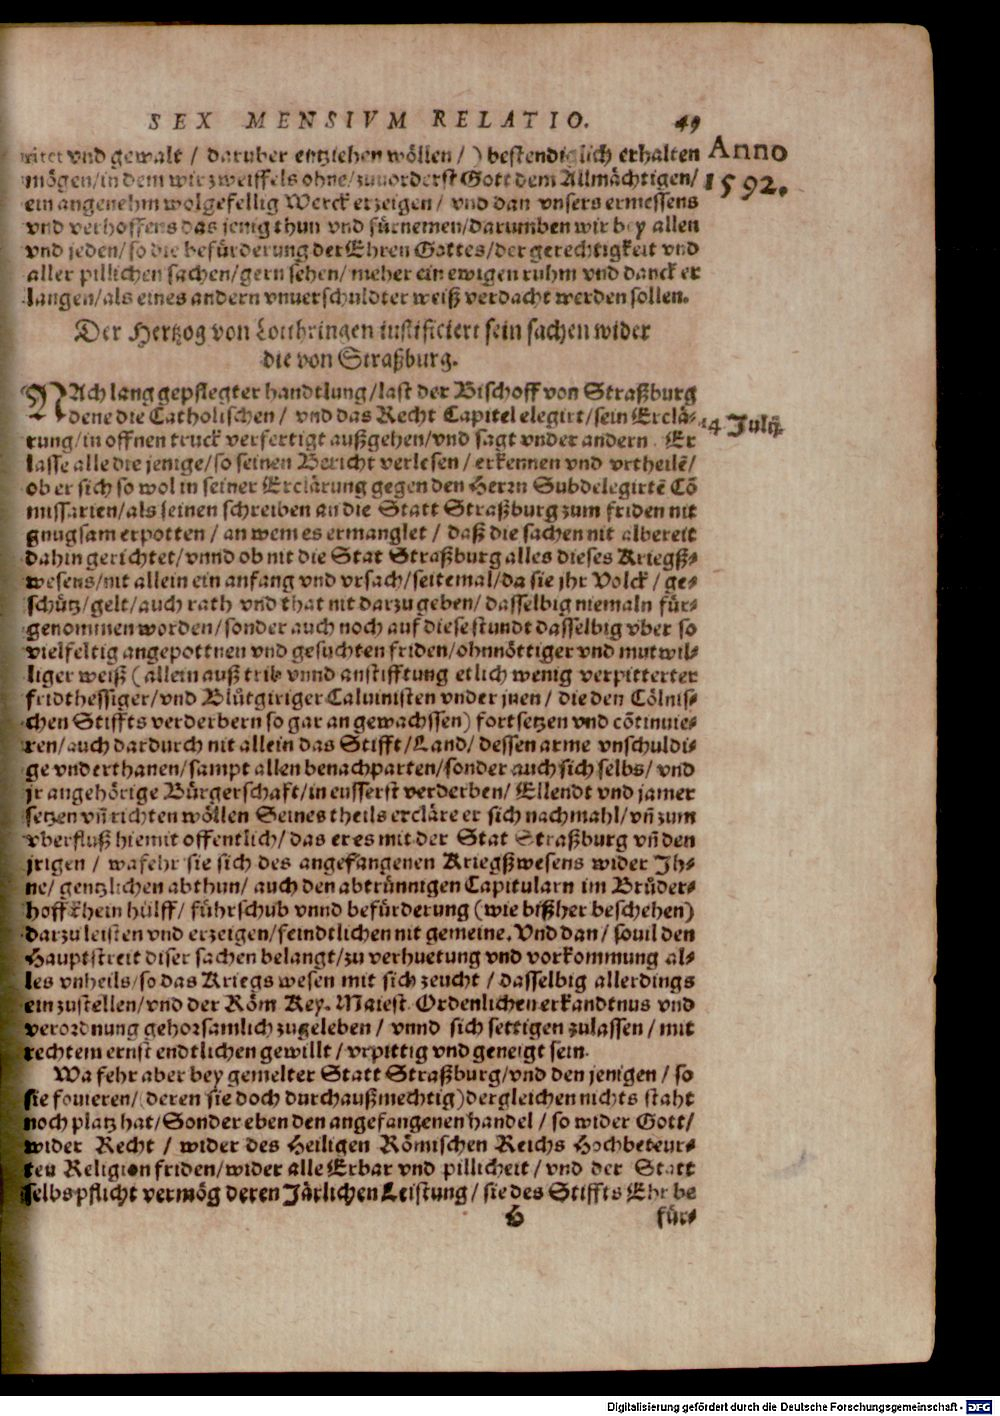 SEX MENSIVM RELATIO. 49
Anno
1592.
vnd gewalt / daruber entziehen wöllen / ) bestendiglich erhalten
mögen/in dem wir zweiffels ohne/zuuorderst Gott dem Allmächtigen/
ein angenehm wolgefellig Werck erzeigen / vnd dan vnsers ermessens
vnd verhoffens das jenig thun vnd fürnemen/darumben wir bey allen
vnd jeden/so die befürderung der Ehren Gottes/der gerechtigkeit vnd
aller pillichen sachen/gern sehen/ meher ein ewigen ruhm vnd danck er
langen/als eines andern vnuerschuldter weiß verdacht werden sollen.
Der Hertzog von Lotthringen iustificiert sein sachen wider
die von Straßburg.
NAch lang gepflegter handtlung/last der Bischoff von Straßburg
dene die Catholischen / vnd das Recht Capitel elegirt/sein Erclä-
14 Julij.
rung/in offnen truck verfertigt außgehen/vnd sagt vnder andern. Er
lasse alle die jenige/so seinen Bericht verlesen / erkennen vnd vrtheilē/
ob er sich so wol in seiner Erclärung gegen den Herrn Subdelegirtē Cō
missarien/als seinen schreiben an die Statt Straßburg zum friden nit
gnugsam erpotten / an wem es ermanglet / daß die sachen nit albereit
dahin gerichtet/vnnd ob nit die Stat Straßburg alles dieses Kriegß-
wesens/nit allein ein anfang vnd vrsach/seitemal/da sie jhr Volck / ge-
schütz/gelt/auch rath vnd that nit darzu geben/ dasselbig niemaln für-
genommen worden/sonder auch noch auf diese stundt dasselbig vber so
vielfeltig angepottnen vnd gesuchten friden/ohnnöttiger vnd mutwil-
liger weiß (allein auß trib vnnd anstifftung etlich wenig verpitterter
fridthessiger/vnd Blütgiriger Caluinisten vnder jnen / die den Cölnis-
chen Stiffts verderbern so gar an gewachssen) fortsetzen vnd cōtinuie-
ren/auch dardurch nit allein das Stifft/Land/ dessen arme vnschuldi-
ge vnderthanen/sampt allen benachparten/sonder auch sich selbs/ vnd
jr angehörige Bürgerschaft/in eusserst verderben/ Ellendt vnd jamer
setzen vn̄ richten wöllen Seines theils ercläre er sich nachmahl/vn̄ zum
vberfluß hiemit offentlich/das er es mit der Stat Straßburg vn̄ den
jrigen / wafehr sie sich des angefangenen Kriegßwesens wider Jh-
ne/ gentzlichen abthun/ auch den abtrünnigen Capitularn im Brüder-
hoff khein hülff/ führschub vnnd befürderung (wie bißher beschehen)
darzu leisten vnd erzeigen/feindtlichen nit gemeine. Vnd dan / souil den
Hauptstreit diser sachen belangt/zu verhuetung vnd vorkommung al-
les vnheils/so das Kriegs wesen mit sich zeucht / dasselbig allerdings
ein zustellen/vnd der Röm Key. Maiest. Ordenlichen erkandtnus vnd
verordnung gehorsamlich zugeleben / vnnd sich settigen zulassen / mit
rechtem ernst endtlichen gewillt / vrpittig vnd geneigt sein.
Wa fehr aber bey gemelter Statt Straßburg/vnd den jenigen / so
sie fouieren/(deren sie doch durchauß mechtig)dergleichen nichts staht
noch platz hat/Sonder eben den angefangenen handel / so wider Gott/
wider Recht / wider des Heiligen Römischen Reichs Hochbeteur-
ten Religion friden/wider alle Erbar vnd pillicheit / vnd der Statt
selbs pflicht vermög deren Järlichen Leistung / sie des Stiffts Ehr be
G für-
Digitalisierung gefördert durch die Deutsche Forschungsgemeinschaft - DFG